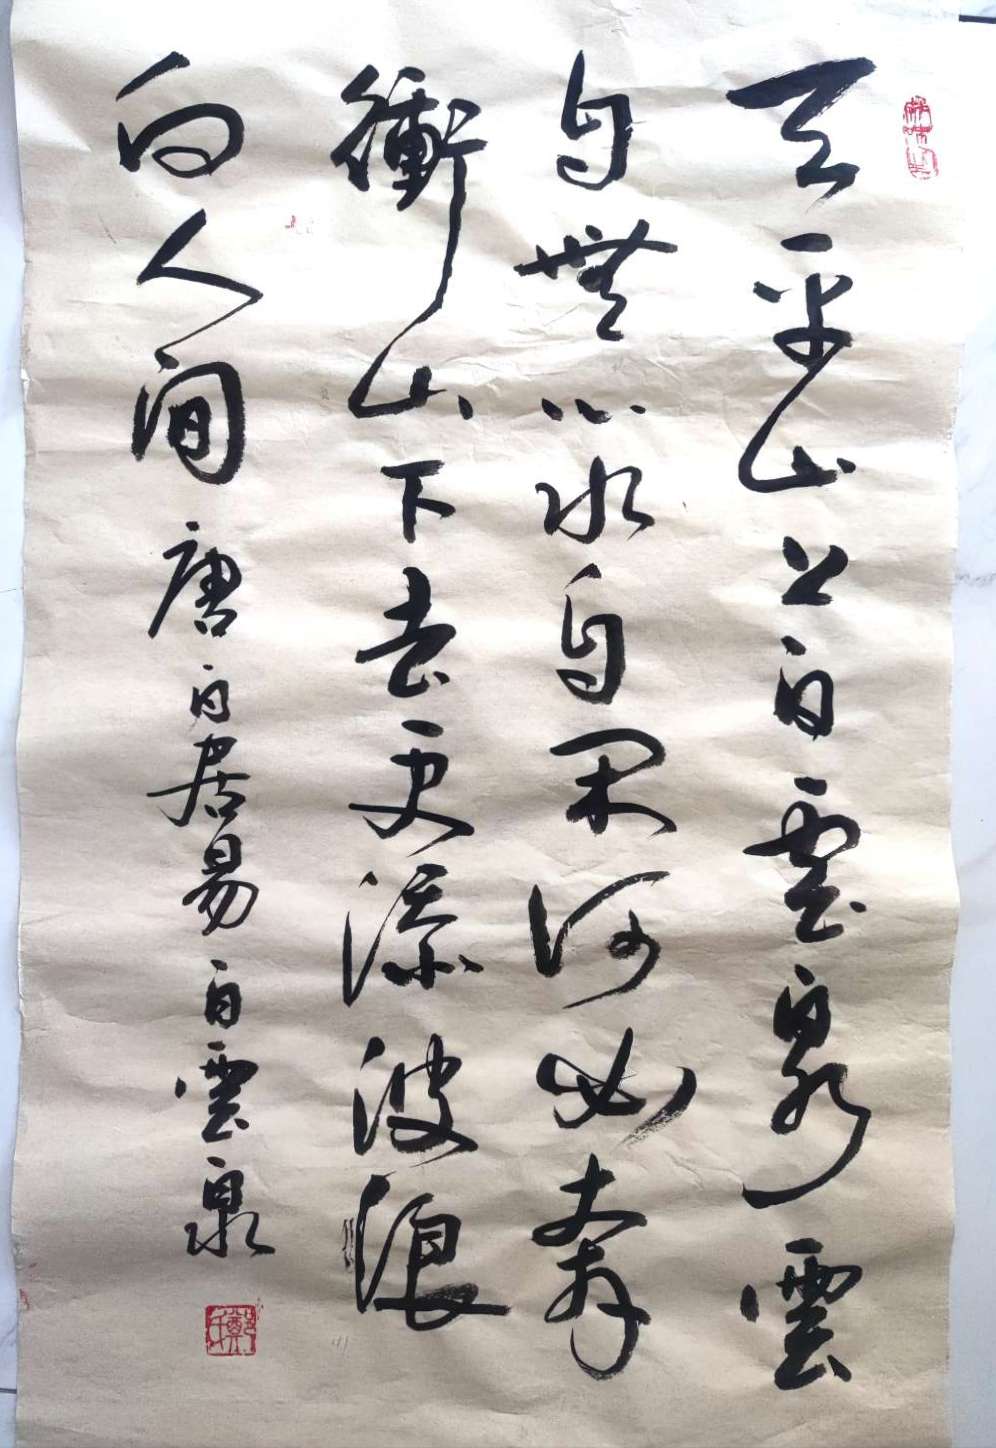 天平山上白雲泉雲
自無心水自閑何必奔
衝山下去更添波浪
向人間 唐白居易白雲泉